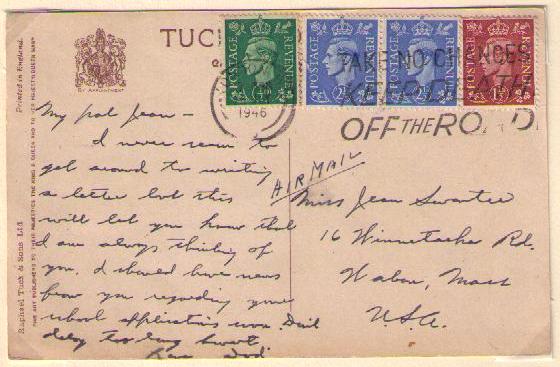 TUC
BY APPOINTMENT
Printed in England.
POSTAGE REVENUE
POSTAGE REVENUE
POSTAGE REVENUE
POSTAGE REVENUE
1946
TAKE NO CH NCES
OFF THE ROAD
My pal Jean –
I never seem to
get around to writing
a letter but this
will let you know that
I am always thinking of
you. I should have news
from you regarding your
school applications soon. Don't
delay too long sweet.
Love Dad
AIR MAIL
Miss Jean Swartee
16 Winnetaska Rd.
Waban, Mass
U.S.A.
Raphael Tuck & Sons Ltd
FINE ART PUBLISHERS TO THEIR MAJESTIES THE KING & QUEEN AND TO HER MAJESTY QUEEN MARY